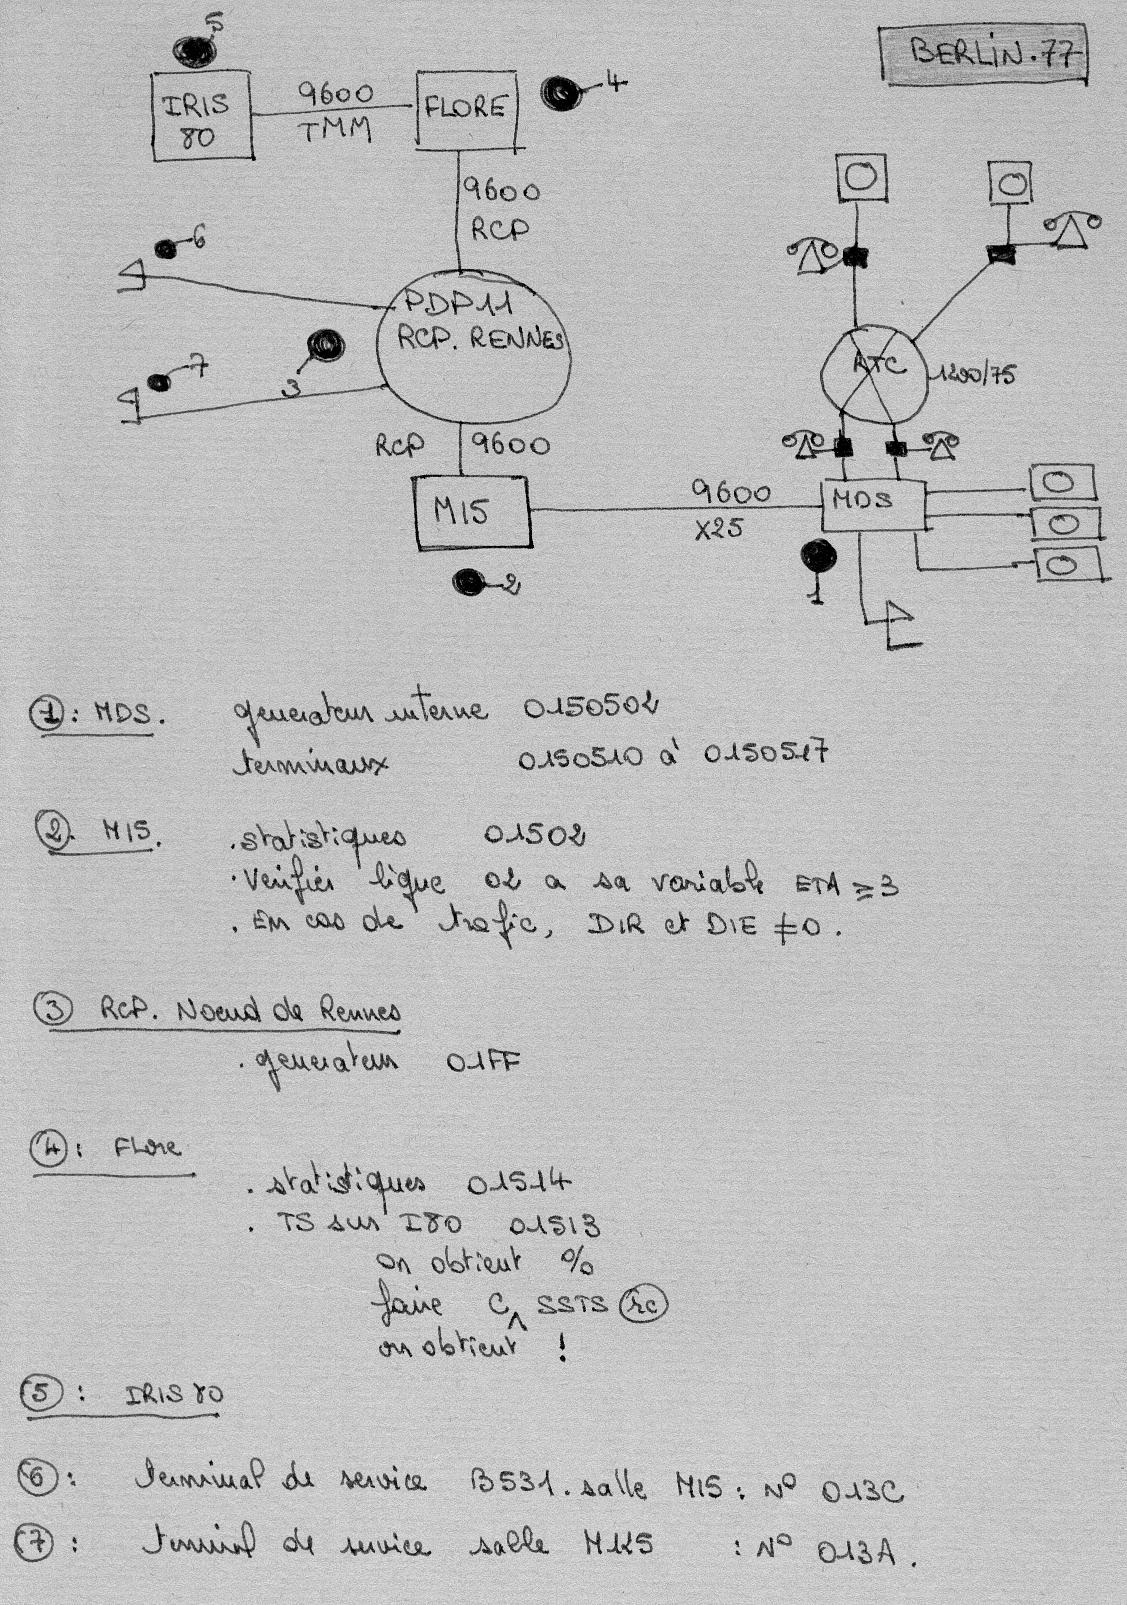 BERLIN.77
5
IRIS
80
9600
TMM
FLORE
4
9600
RCP
6
PDP11
RCP. RENNES
3
7
ATC
1200/75
RCP 9600
M15
2
9600
X25
MDS
1
1: MDS. generateur interne 0150502
terminaux 0150510 à 0150517
2. M15. . statistiques 01502
. Verifier ligne 02 a sa variable ETA ≥ 3
. En cas de trafic, DIR et DIE ≠ 0.
3 RCP. Noeud de Rennes
. generateur 01FF
4: Flore
. statistiques 01514
. TS sur I80 01513
on obtient %
faire C^SSTS rc
on obtient !
5: IRIS 80
6: terminal de service B531. salle M15: N° 013C
7: terminal de service salle : N° 013A.